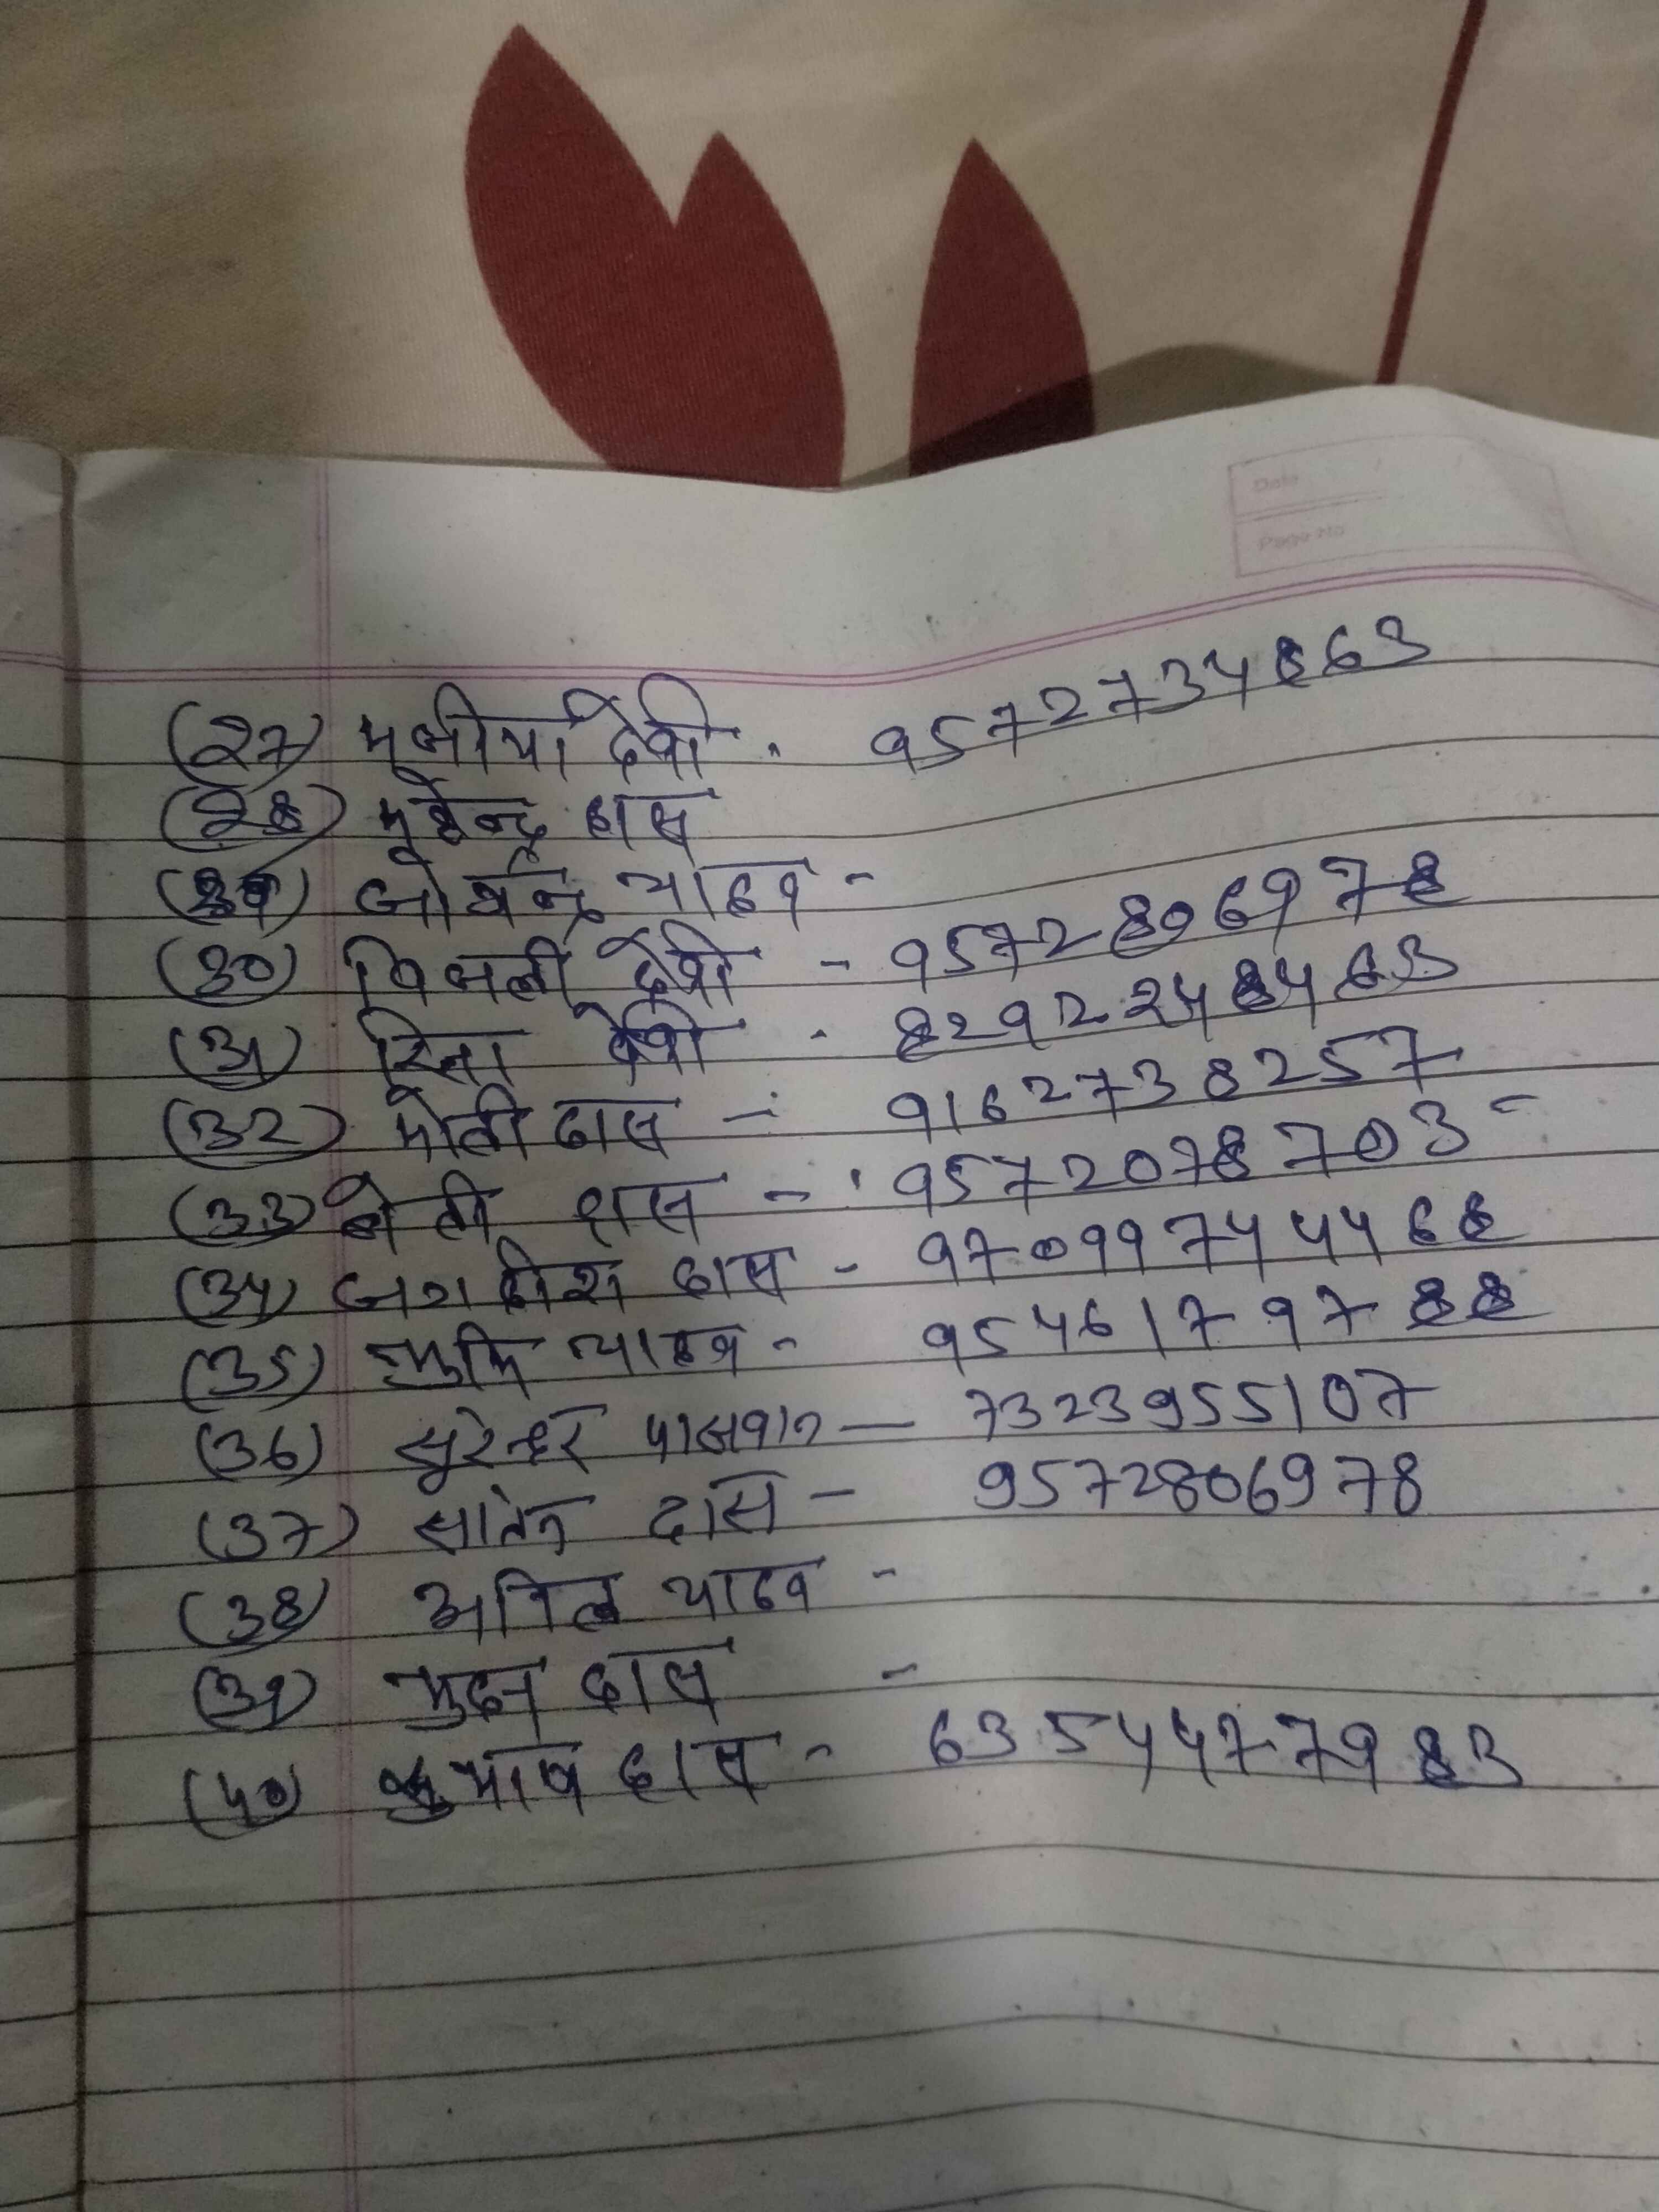 Date
Page No
(27) मूनीया देवी - 9572734863
(28) महेन्द्र दास
(29) जोगेन्द्र यादव -
(30) बिजली देवी - 9572806978
(31) रिना देवी - 8292248463
(32) मोती दास - 9162738257
(33) जेती दास - 9572078703 -
(34) जगदीश दास - 9709974468
(35) यादव - 9546179788
(36) सुरेन्दर पासवान - 7323955107
(37) दास - 9572806978
(38) अनिल यादव -
(39) मुदन दास -
(40) सुभाष दास - 6354477983